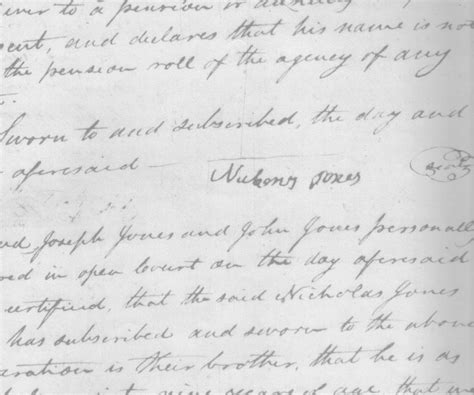 ever to a pension or annuity
sent, and declares that his name is not
the pension roll of the agency of any
Sworn to and subscribed, the day and
aforesaid
Jones
seal
and Joseph Jones and John Jones personall
red in open Court on the day aforesaid
certified, that the said Nicholas Jones
has subscribed and sworn to the above
eration is their brother, that he is as
of age, that